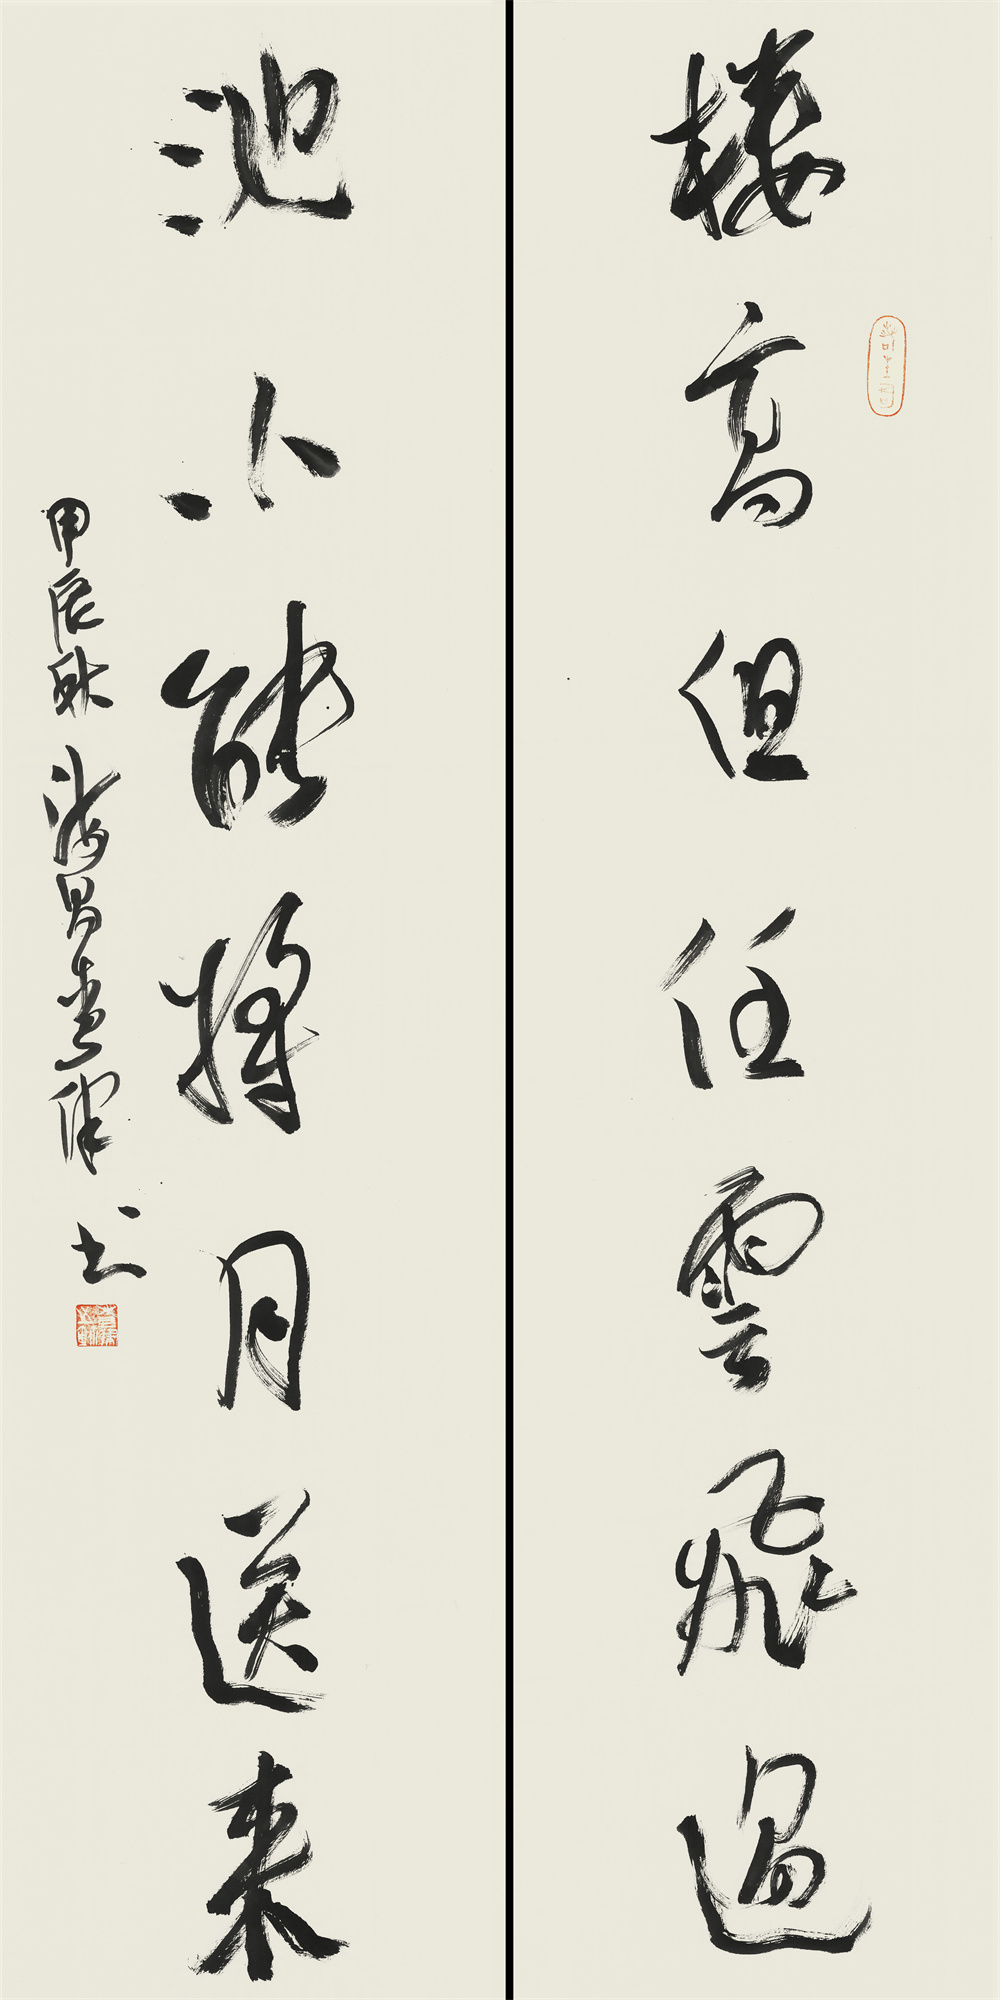 楼高但任雲飛過
池小能將月送来
甲辰秋海昌書